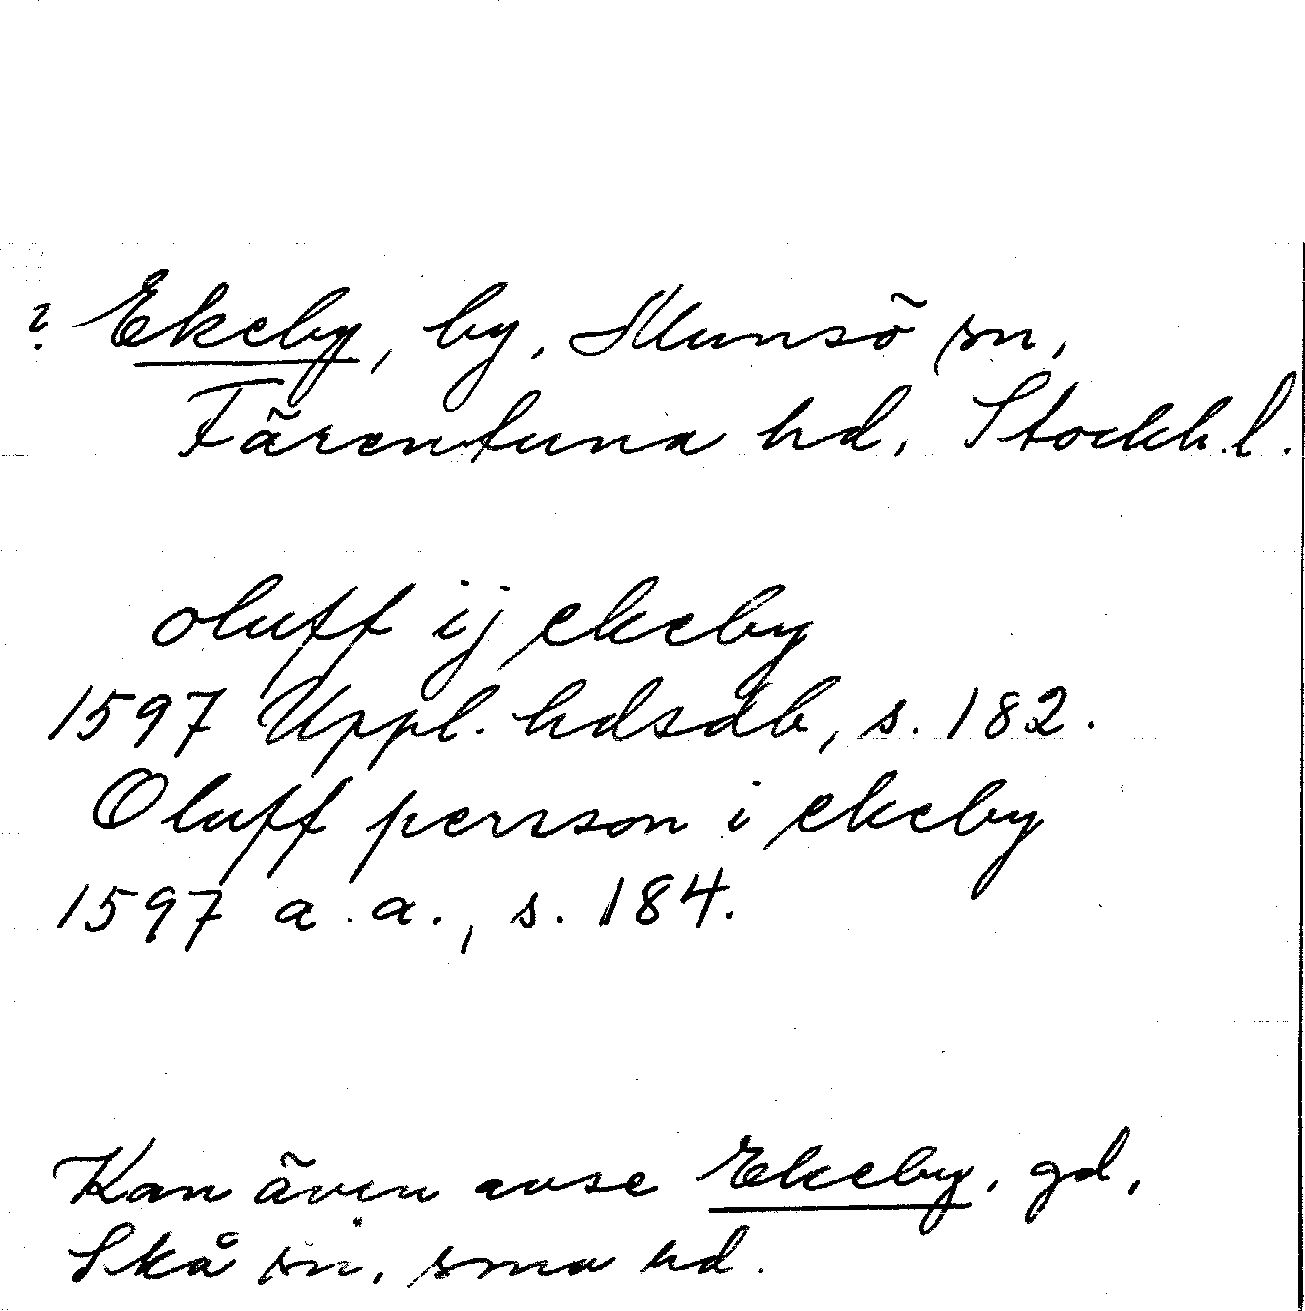 ? Ekeby, by, Munsö sn,
Färentuna hd, Stockh.l.
oluff ij ekeby
1597 Uppl. hdsdb, s. 182.
Oluff persson i ekeby
1597 a.a., s. 184.
Kan även avse Ekeby, gd,
Skå sn, sma hd.